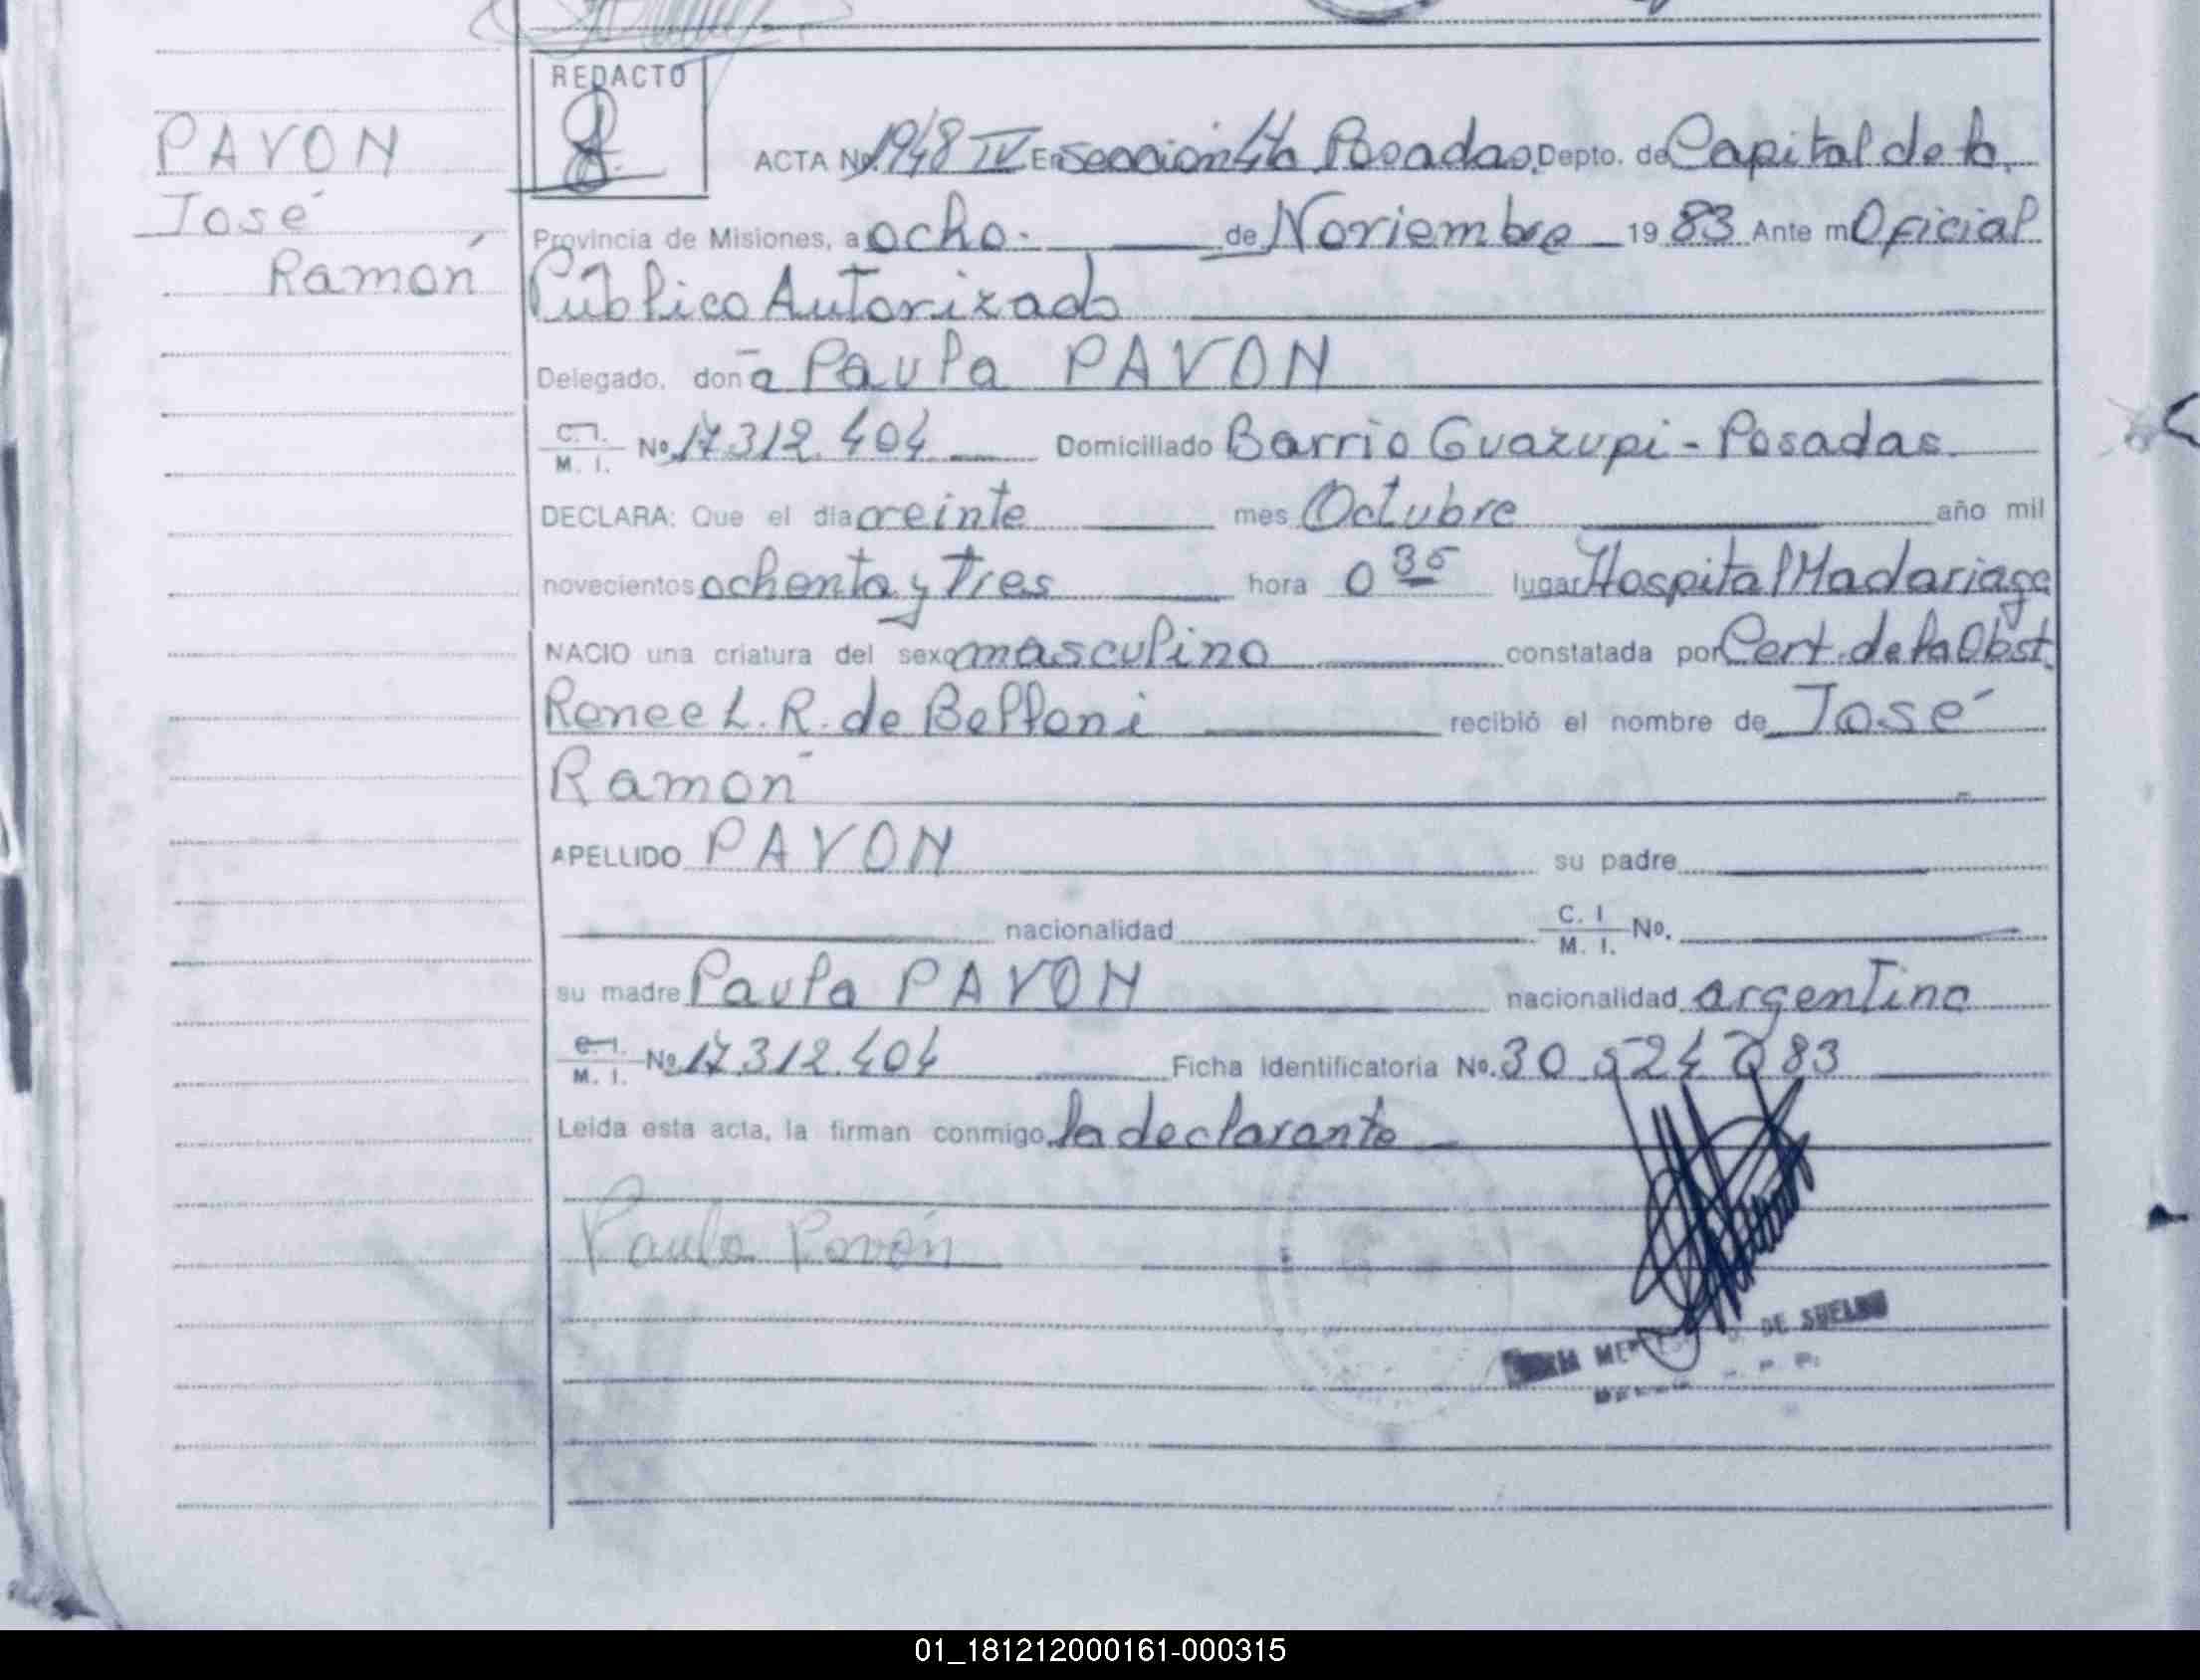 REDACTO
PAVON
José
Ramón
ACTA Nº 1948 IV En Sección 4ta Posadas, Depto. de Capital de la
Provincia de Misiones, a ocho. de Noviembre 1983 Ante mí Oficial
Público Autorizado
Delegado, doña Paula PAVON
C.I. M.I. Nº 17.312.404 Domiciliado Barrio Guazupi - Posadas.
DECLARA: Que el día veinte mes Octubre año mil
novecientos ochenta y tres hora 0 35 lugar Hospital Madariaga
NACIO una criatura del sexo masculino constatada por Cert. de la Obst.
Renee L. R. de Belloni recibió el nombre de José
Ramón
APELLIDO PAVON su padre
nacionalidad C. I M. I. Nº.
su madre Paula PAVON nacionalidad argentina
C.I. M. I. Nº 17.312.404 Ficha Identificatoria Nº. 30 524 283
Leída esta acta, la firman conmigo, la declarante
Paula Pavón
DE SUELDO
01_181212000161-000315